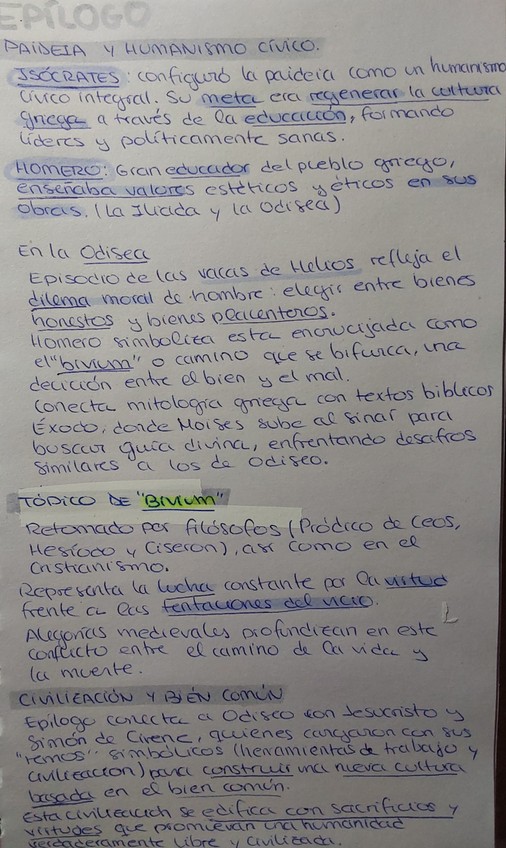 EPÍLOGO
PAIDEIA Y HUMANISMO CÍVICO.
ISÓCRATES: configuró la paideia como un humanismo
cívico integral. Su meta era regenerar la cultura
griega a través de la educación, formando
líderes y políticamente sanas.
HOMERO: Gran educador del pueblo griego,
enseñaba valores estéticos y éticos en sus
obras. (La Iliada y la Odisea)
En la Odisea
Episodio de las vacas de Helios refleja el
dilema moral de hombre: elegir entre bienes
honestos y bienes placenteros.
Homero simboliza esta encrucijada como
el "bivium" o camino que se bifurca, una
decición entre el bien y el mal.
Conecta mitología griega con textos biblicos
Éxodo, donde Moises sube al Sinaí para
buscar guía divina, enfrentando desafíos
similares a los de Odiseo.
TÓPICO DE "BIVIUM"
Retomado por filósofos (Pródico de Ceos,
Hesíodo y Ciseron), así como en el
Cristianismo.
Representa la lucha constante por la virtud
frente a las tentaciones del vicio.
Alegorías medievales profundizan en este
conflicto entre el camino de la vida y
la muerte.
CIVILIZACIÓN Y BIÉN COMÚN
Epílogo conecta a Odiseo con Jesucristo y
Simón de Cirene, quienes cargaron con sus
"remos" simbólicos (herramientas de trabajo y
civilización) para construir una nueva cultura
basada en el bien común.
Esta civilización se edifica con sacrificios y
virtudes que promuevan una humanidad
verdaderamente libre y civilizada.